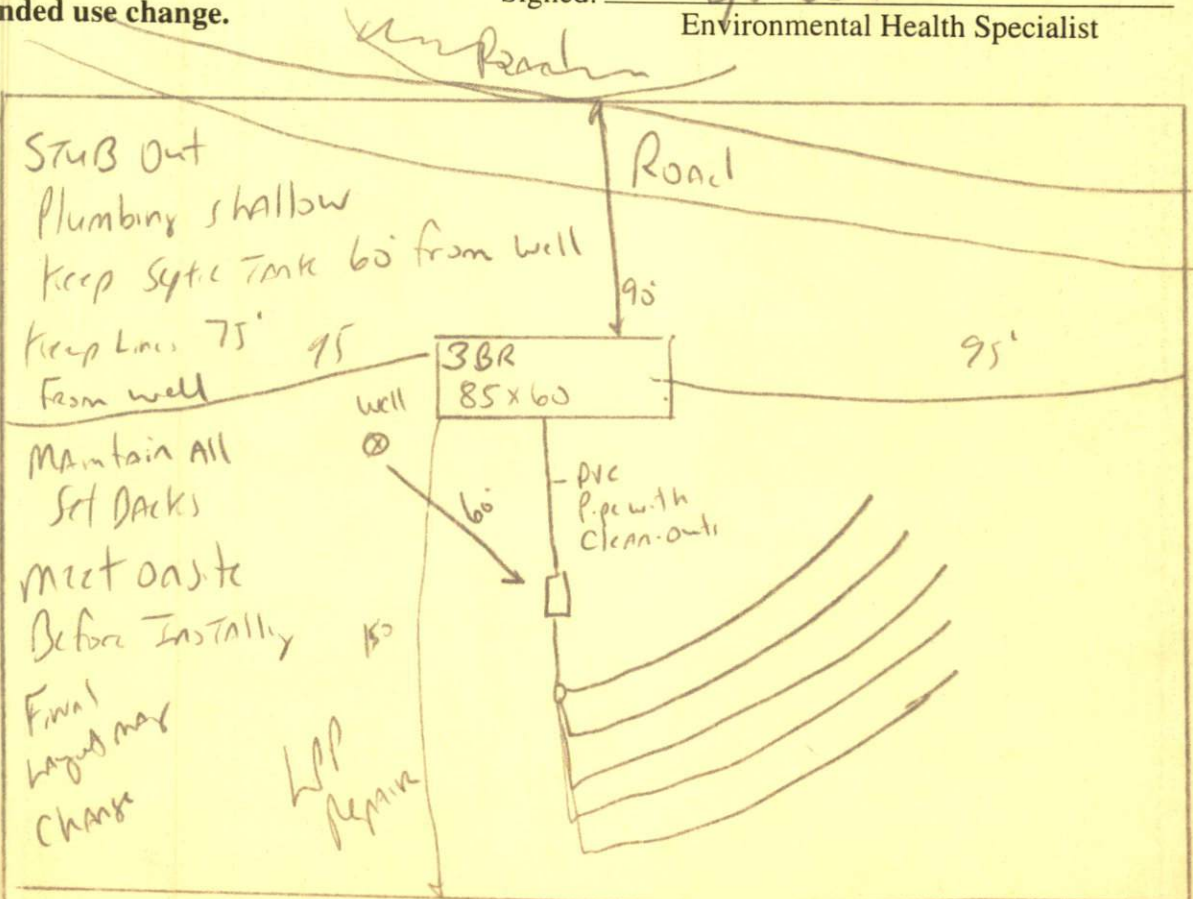 nded use change.
Signed:
Environmental Health Specialist
Road
STUB Out
Plumbing shallow
Keep Septic Tank 60' from well
Keep Lines 75'
From well
95
90'
3BR
85 x 60
95'
well
60'
PVC
Pipe with
Clean-outs
Maintain All
Set Backs
Meet onsite
Before Installing
150
Final
Layout may
Change
LPP
Repair